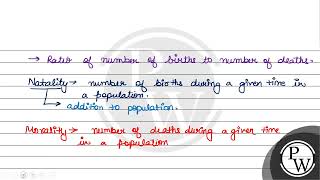 → Ratio of number of births to number of deaths.
Natality → number of births during a given time in
a population.
→ addition to population.
Morality → number of deaths during a given time
in a population
P
W